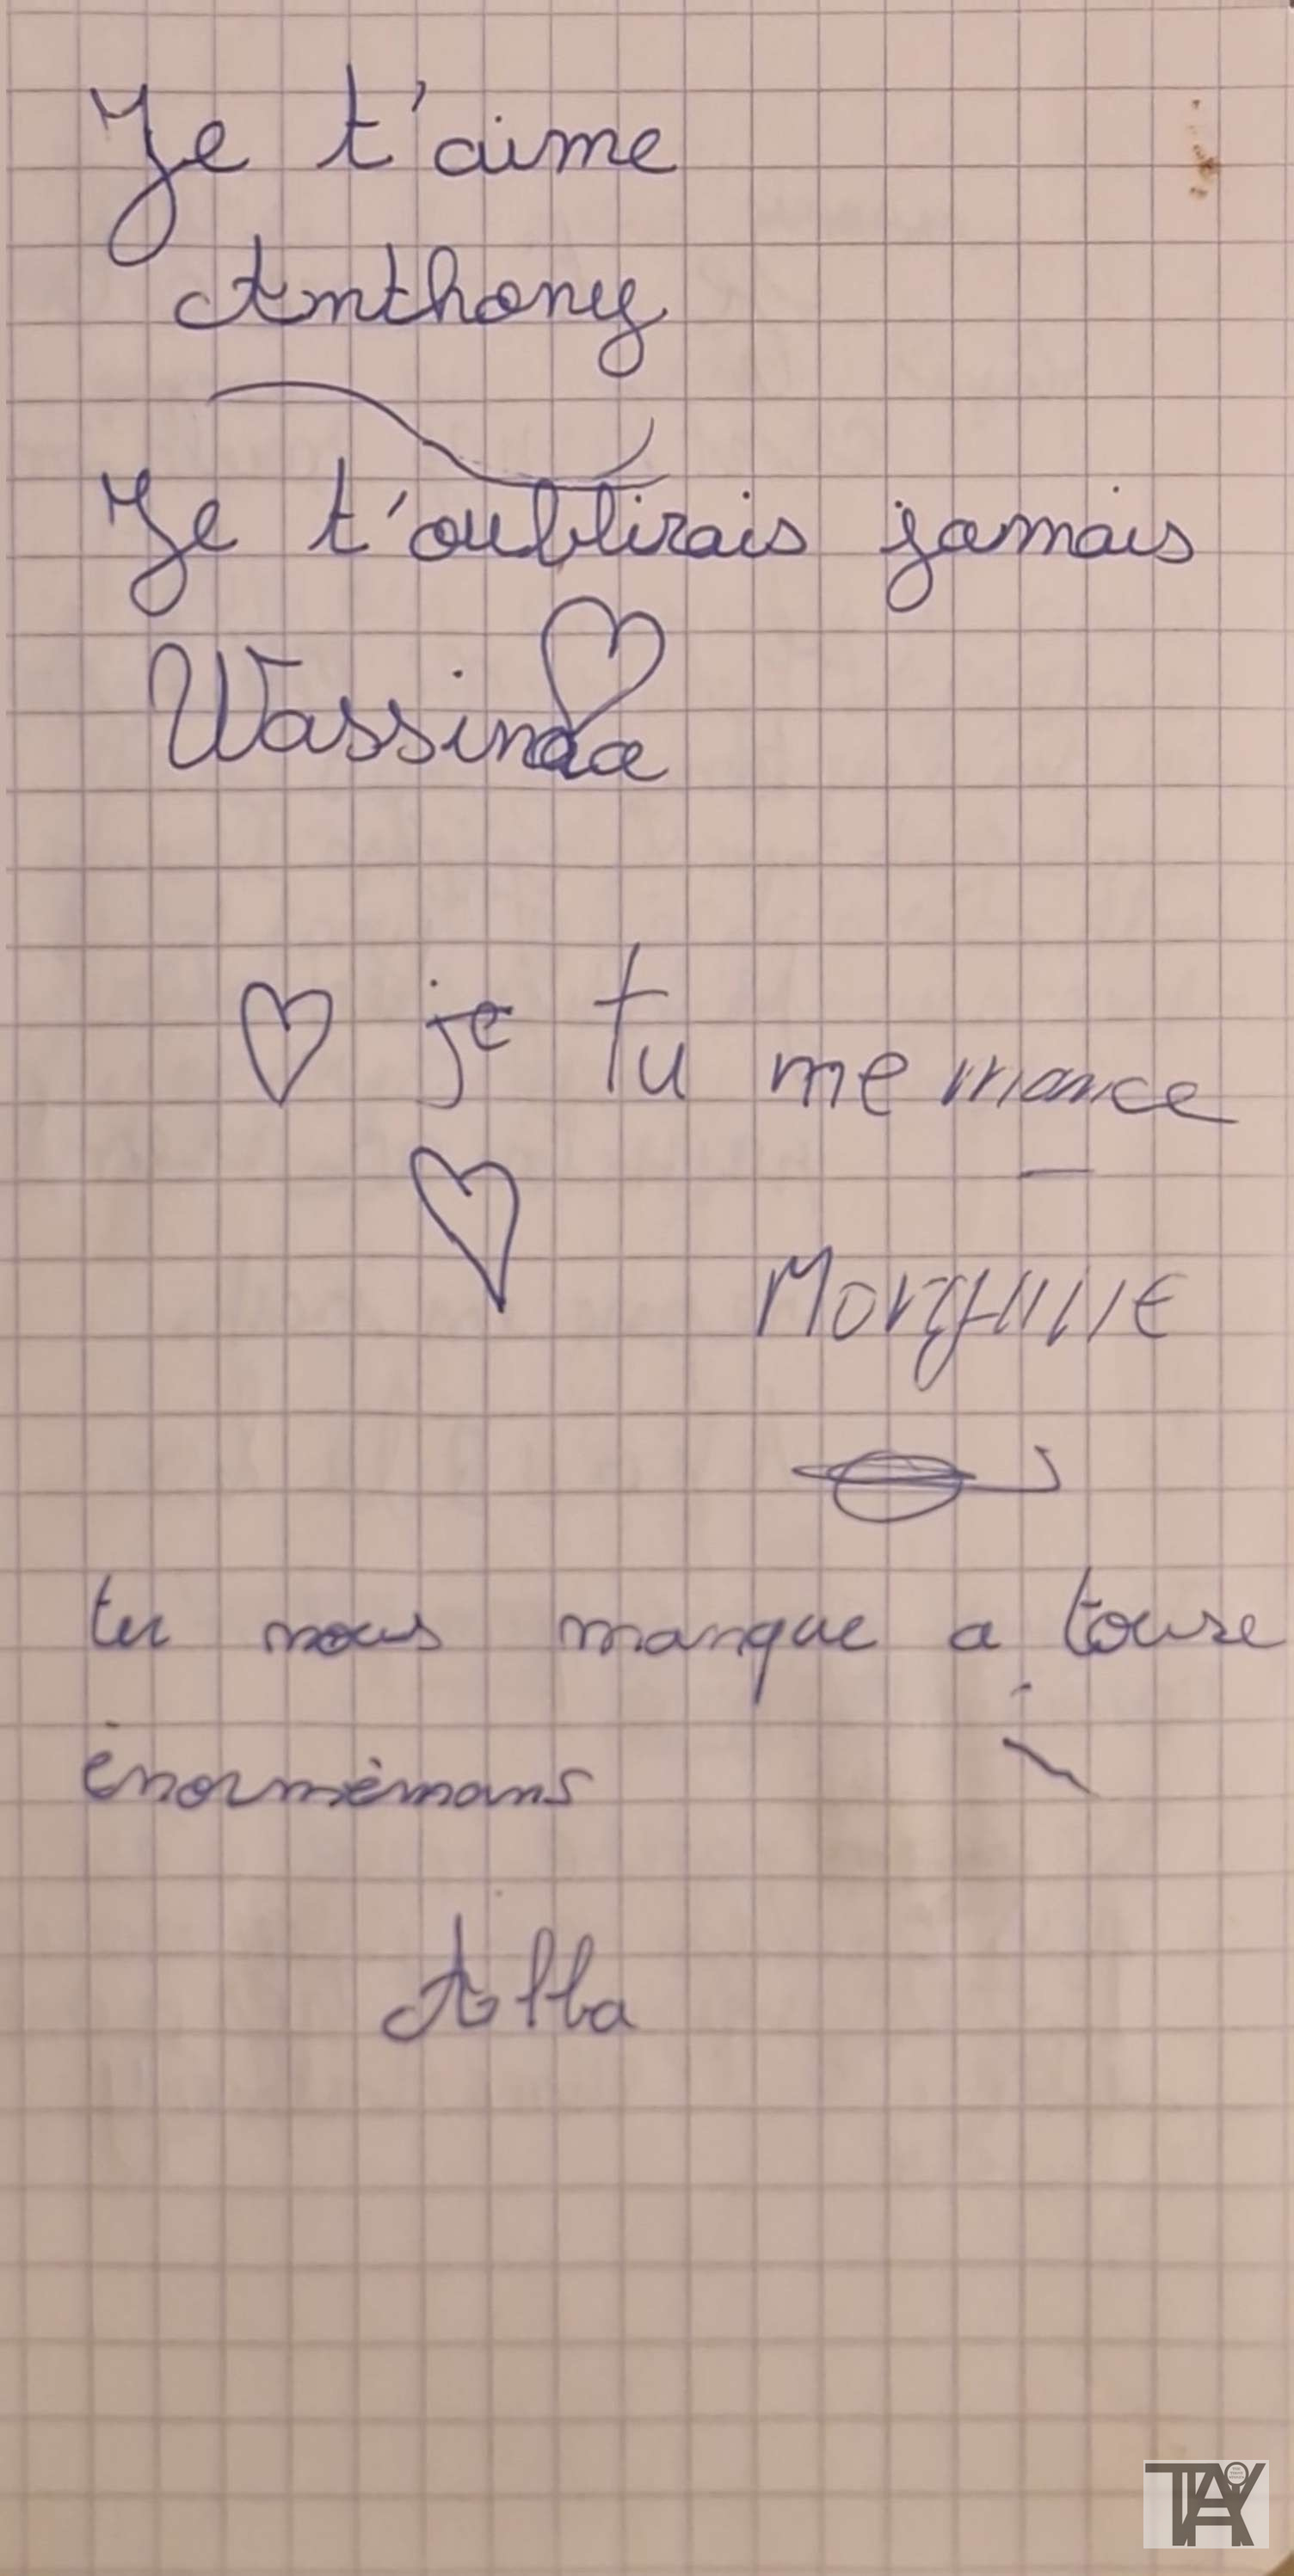 Je t'aime
Anthony
Je t'oublirais jamais
Wassinaa
je tu me mance
tu nous manque a touse
énormémans
Alba
TAY